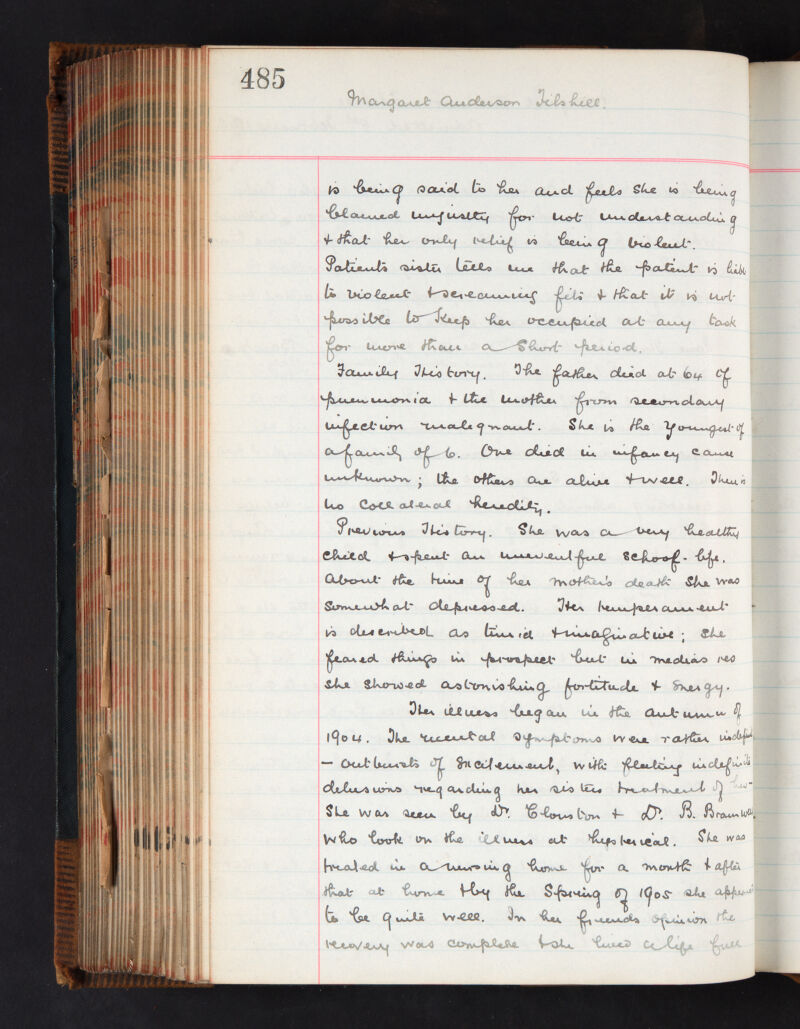 485
Margaret Anderson Tilshill.
is being said to her and feels She is being
blamed unjustly for not understanding
& that her only relief is being violent.
Patients sister tells me that the patient is liable
to violent & screaming fits & that it is not
possible to Keep her occupied at any task
for more than a Short period.
Family History. The father died at 64 of
pneumonia & the mother from secondary
infection malignant. She is the Youngest of
a family of 6. One died in infancy cause
unknown; the others are alive & well. There is
no Collateral heredity.
Previous History. She was a very healthy
child & spent an uneventful School-life.
About the time of her mother's death She was
Somewhat depressed. Her temperament
is described as timid & imaginative; She
feared things in prospect but in medias res
She Showed astonishing fortitude & Energy.
Her illness began in the autumn of
1904. The mental symptoms were rather indefinite
- outbursts of Excitement, with fleeting indefinite
delusions regarding her sisters treatment of her-
She was seen by Dr. Clouston & Dr. B. Bramwell,
who look on the illness at hysterical. She was
treated in a nursing home for a month & after
that at home & by the Spring of 1905 she appeared
to be quite well. In her friends opinion the
recovery was complete & she lived a life free